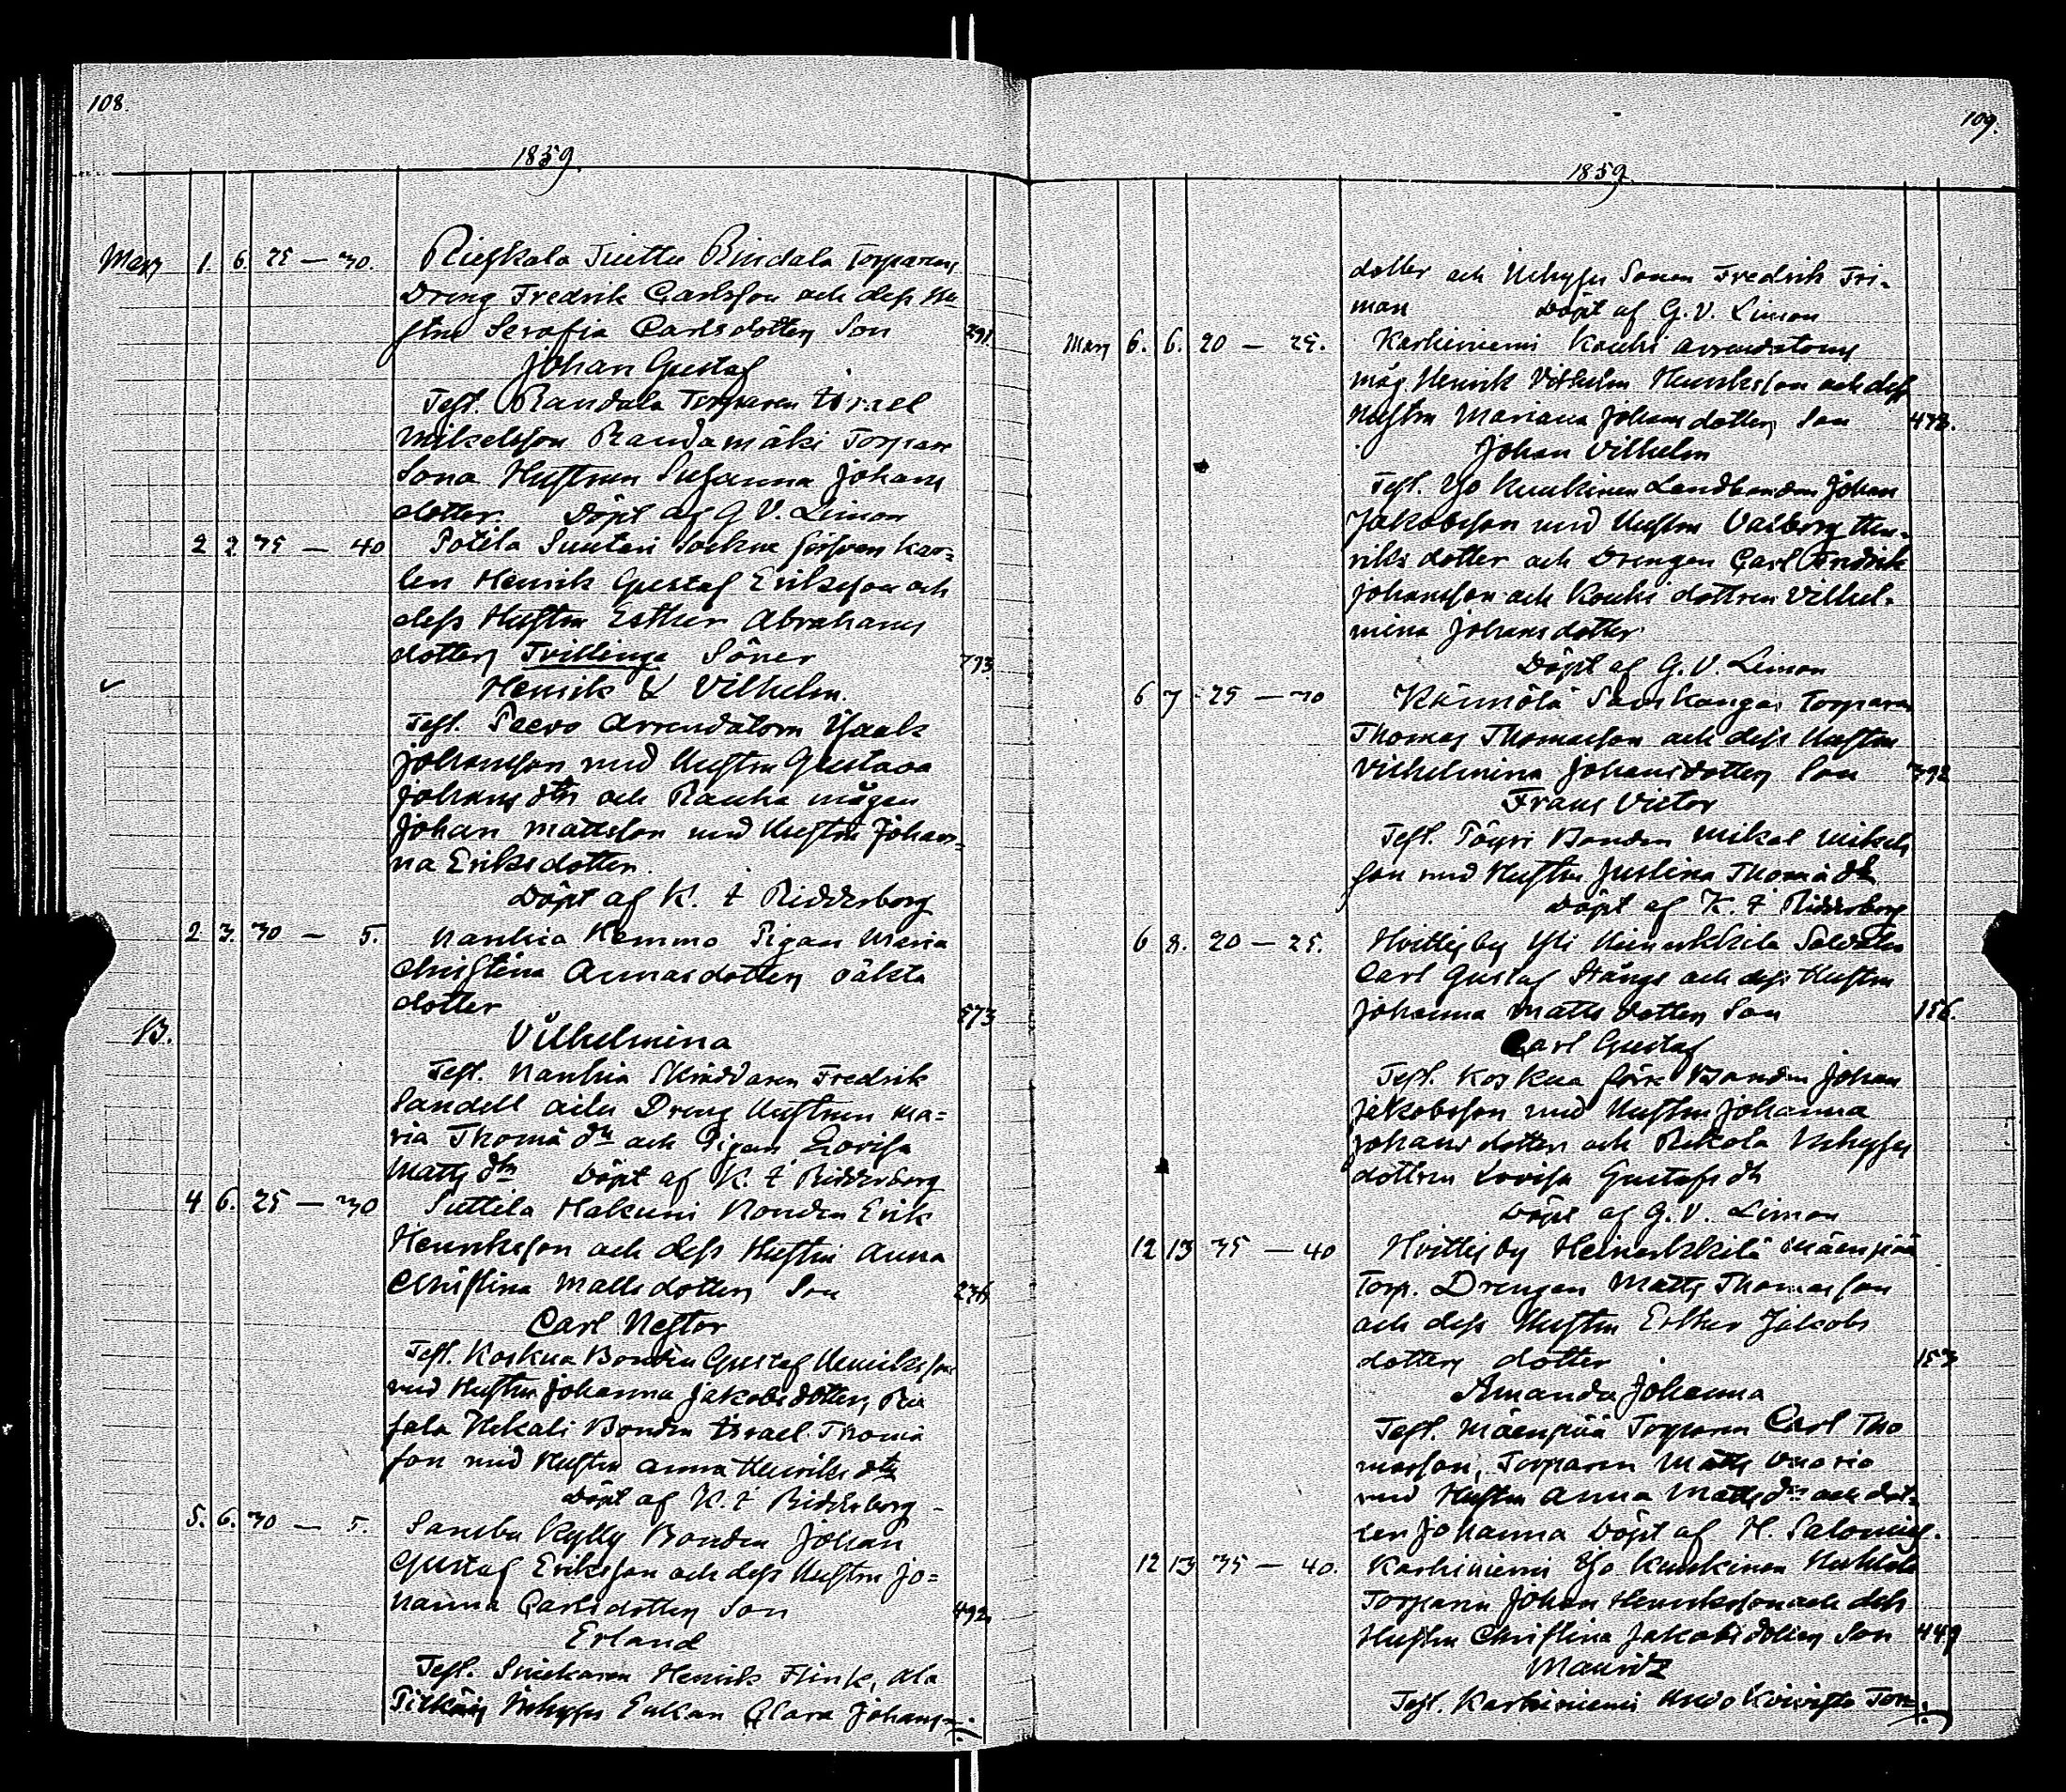 108.
1859.
Mars 1. 6. 25 — 30. Torparens
Dreng Fredrik Carlsson och dess Hu
stru Serafia Carlsdotters Son 291
Johan Gustaf
Test. Randala Torparen Israel
Mikelsson Raudamäki Torpare
Sona Hustrun Susanna Johans
dotter. Döpt af G V. Limon
2 2 35 — 40 Potila Suutari Sockne
Henrik Gustaf Eriksson och
dess Hustru Esther Abrahams
dotters Tvillinge Söner 773
Henrik & Vilhelm.
Test. Peevo Arrendatorn Isaak
Johansson med Hustru Gustava
Johans dtr och Rauha mågen
Johan Mattsson med Hustru Johan=
na Eriksdotter.
Döpt af K. F Ridderborg
2 3. 30 — 5. Nanhia Hemmo Pigan Maria
Christina Annasdotters oäkta
dotter 573
B. Vilhelmina
Test. Nanhia Skräddaren Fredrik
Sandell Dreng Hustrun Ma=
ria Thomä dtr och Pigan Lovisa
Matts dtr Döpt af K. F Ridderborg
4 6. 25 — 30 Suttila Hakuni Bonden Erik
Henriksson och dess Hustru Anna
Christina Mattsdotters Son 236
Carl Nestor
Test. Koskua Bonden Gustaf Henriksson
med Hustru Johanna Jakobsdotter,
Bonden Israel Thomä
son med Hustru Anna Henriks dtr
Döpt af K. F Ridderborg
5. 6. 30 — 5. Sambu Kylly Bonden Johan
Gustaf Eriksson och dess Hustru Jo=
hanna Carlsdotters Son 492
Erland
Test. Snickaren Henrik Flink, Ala
Pitkäis Inhyses Enkan Clara Johans
109.
1859.
dotter och Inhyses Sonen Fredrik Fri=
man Döpt af G. V. Limon
Mars 6. 6. 20 — 25. Karhiniemi Kouhi Arrendatorns
måg Henrik Vilhelm Henriksson och dess
Hustru Mariana Johansdotters Son 472.
Johan Vilhelm
Test. Yo Kuukinen Landbonden Johan
Jakobsson med Hustru Valborg Hen=
riks dotter och Drengen Carl Fredrik
Johansson och Kouhi dottren Vilhel=
mina Johansdotter
Döpt af G. V. Limon
6 7 25 — 30 Kännölä Torparen
Thomas Thomasson och dess Hustru
Vilhelmina Johansdotters Son 392
Frans Victor
Test. Pöyri Bonden Mikel Mikels
son med Hustru Justina Thomä dtr
Döpt af K. F Ridderborg
6 8. 20 — 25. Hvittisby Yli Heinikkilä Soldaten
Carl Gustaf Stånge och dess Hustru
Johanna Mattsdotters Son 156.
Carl Gustaf
Test. Koskua förre Bonden Johan
Jakobsson med Hustru Johanna
Johans dotter och Rekola Inhyses
dottren Lovisa Gustafs dtr
Döpt af G. V. Limon
12 13 35 — 40 Hvittisby Heinikkilä Mäenpää
Torp. Drengen Matts Thomasson
och dess Hustru Esther Jakobs
dotters dotter 153
Amanda Johanna
Test. Mäenpää Torparen Carl Tho
masson, Torparen Matts
med Hustru Anna Matts dtr och dot=
ter Johanna Döpt af H. Salonius.
12 13 35 — 40. Karhiniemi Yo Kuukinen
Torparen Johan Henriksson och dess
Hustru Christina Jakobsdotters Son 449
Mauritz
Test. Karhiniemi Torp.